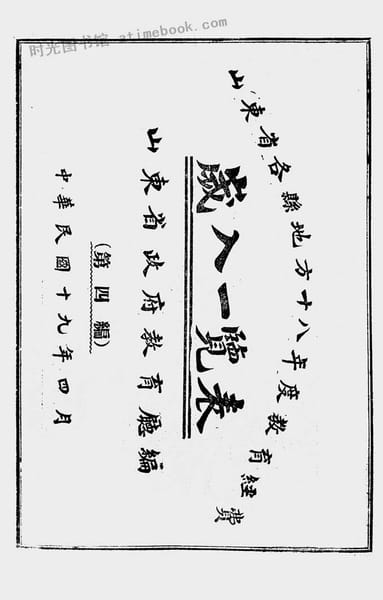 时光图书馆 - atimebook.com
山東省各縣地方十八年度教育經費
歲入一覽表
山東省政府教育廳編
(第四編)
中華民國十九年四月